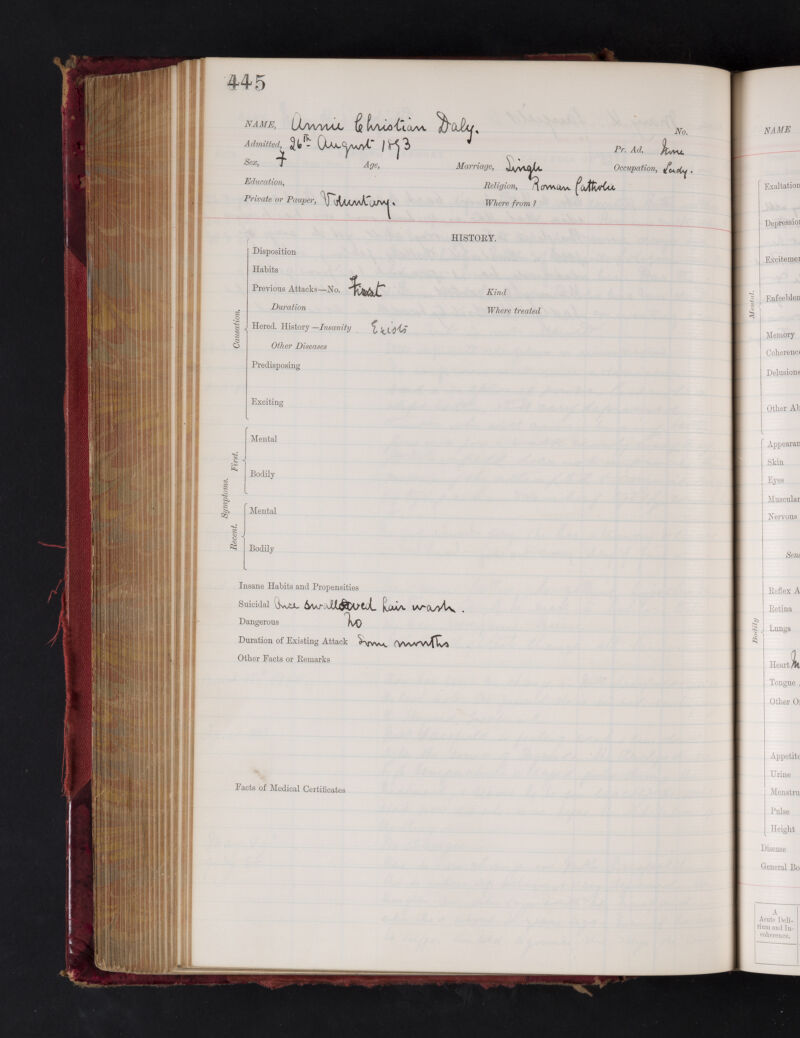 445
NAME, Annie Christian Daly. No.
Admitted, 26th August 1893 Pr. Ad. None
Sex, F Age, Marriage, Single Occupation, Lady.
Education, Religion, Roman Catholic
Private or Pauper, Voluntary. Where from?
HISTORY.
Disposition
Habits
Previous Attacks—No. First Kind
Duration Where treated
Hered. History—Insanity Exists
Other Diseases
Predisposing
Exciting
Causation.
Mental
Bodily
First.
Symptoms.
Mental
Bodily
Recent.
Insane Habits and Propensities
Suicidal Once swallowed hair wash.
Dangerous no
Duration of Existing Attack Some months
Other Facts or Remarks
Facts of Medical Certificates
NAME
Exaltation
Depression
Excitemen
Enfeeblem
Mental.
Memory
Coherence
Delusions
Other Ab
Appearan
Skin
Eyes
Muscular
Nervous
Sens
Reflex A
Retina
Lungs
Bodily
Heart
Tongue
Other O
Appetite
Urine
Menstru
Pulse
Height
Disease
General Bo
A
Acute Deli-
rium and In-
coherence.